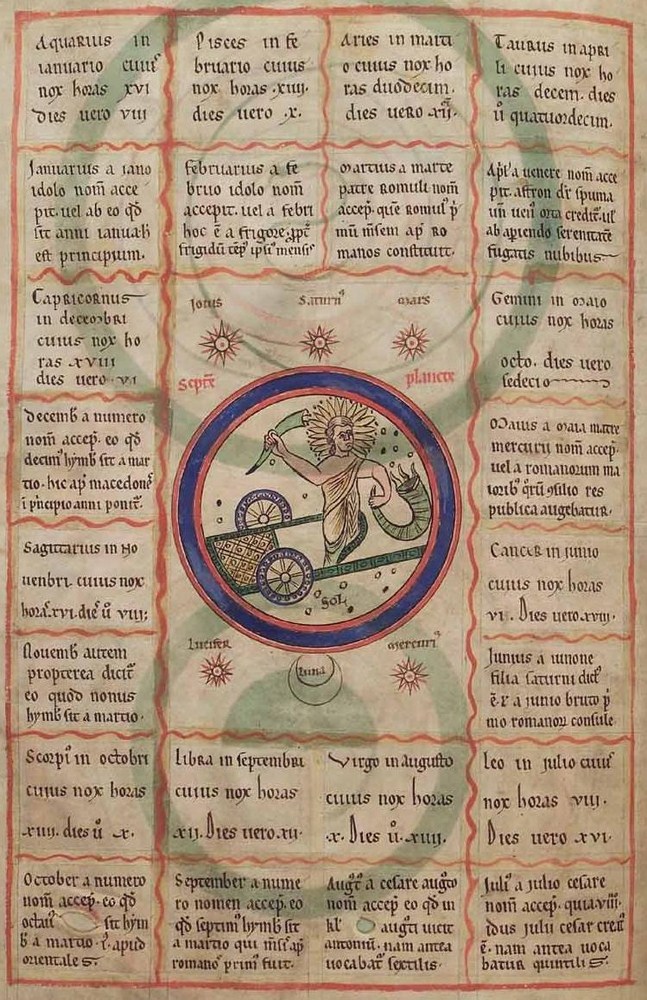 Aquarius in
ianuario cuius
nox horas xvi
dies uero viii
Pisces in fe
bruario cuius
nox horas .xiiii.
dies uero .x.
Aries in marti
o cuius nox ho
ras duodecim.
dies uero xii.
Taurus in apri
li cuius nox ho
ras decem. dies
ů quatuordecim.
Januarius a iano
idolo nom̅ acce
pit. uel ab eo qđ
sit anni ianua
est principium.
Februarius a fe
bruo idolo nom̅
accepit. uel a febri
hoc ē a frigore
frigidū
Martius a marte
patre Romuli nom̅
accep. 
mū m̅sem ap̅ Ro
manos constituit.
a uenere nom̅ acce
pit. spuma
orta
ab aperiendo serenitate
fugatis nubibus
Capricornus
in decembri
cuius nox ho
ras xviii
dies uero .vi
Iouis
Saturn᷒
Mars
Septē
planete
Gemini in maio
cuius nox horas
octo. dies uero
sedeci
Decemb̅ a numero
nom̅ accep. eo qđ
decim᷒ hymb̅ sit a mar
tio. hic ap̅ macedone
anni ponit̅.
Maius a maia matre
mercurii nom̅ accep.
uel a romanorum ma
iorib᷒ res
publica augebatur.
Sagittarius in no
uenbri. cuius nox
horaē.xvi.dieē ů viii;
Cancer in iunio
cuius nox horas
vi. Dies uero.xviii.
Sol
Nouemb̅ autem
propterea dicit̅
eo quod nonus
hymb̅ sit a martio.
Lucifer
Luna
Mercuri᷒
Junius a iunone
filia saturni dict᷒
ē. a iunio bruto p̅
mo romanoꝝ consule
Scorpi᷒ in octobri
cuius nox horas
xiiii. dies ů x.
Libra in septembri
cuius nox horas
xii. Dies uero.xii.
Virgo in augusto
cuius nox horas
.x. Dies ů.xiiii.
Leo in julio cuius
nox horas viii.
Dies uero xvi.
October a numero
nom̅ accep. eo qđ
octau᷒ sit hym
b̅ a martio. apud
orientales.
September a nume
ro nomen accep. eo
qđ septim᷒ hymb̅ sit
a martio qui m̅sis ap̅
romanos prim᷒ fuit.
Augt᷒ a cesare augto
nom̅ accep eo qđ in
kl̅ augti uicit
antoniu̅. nam antea
uocabat᷒ sextilis.
Juli᷒ a julio cesare
nom̅ accep. quia.viii.
idus julii cesar creat᷒
ē. nam antea uoca
batur quintilis.